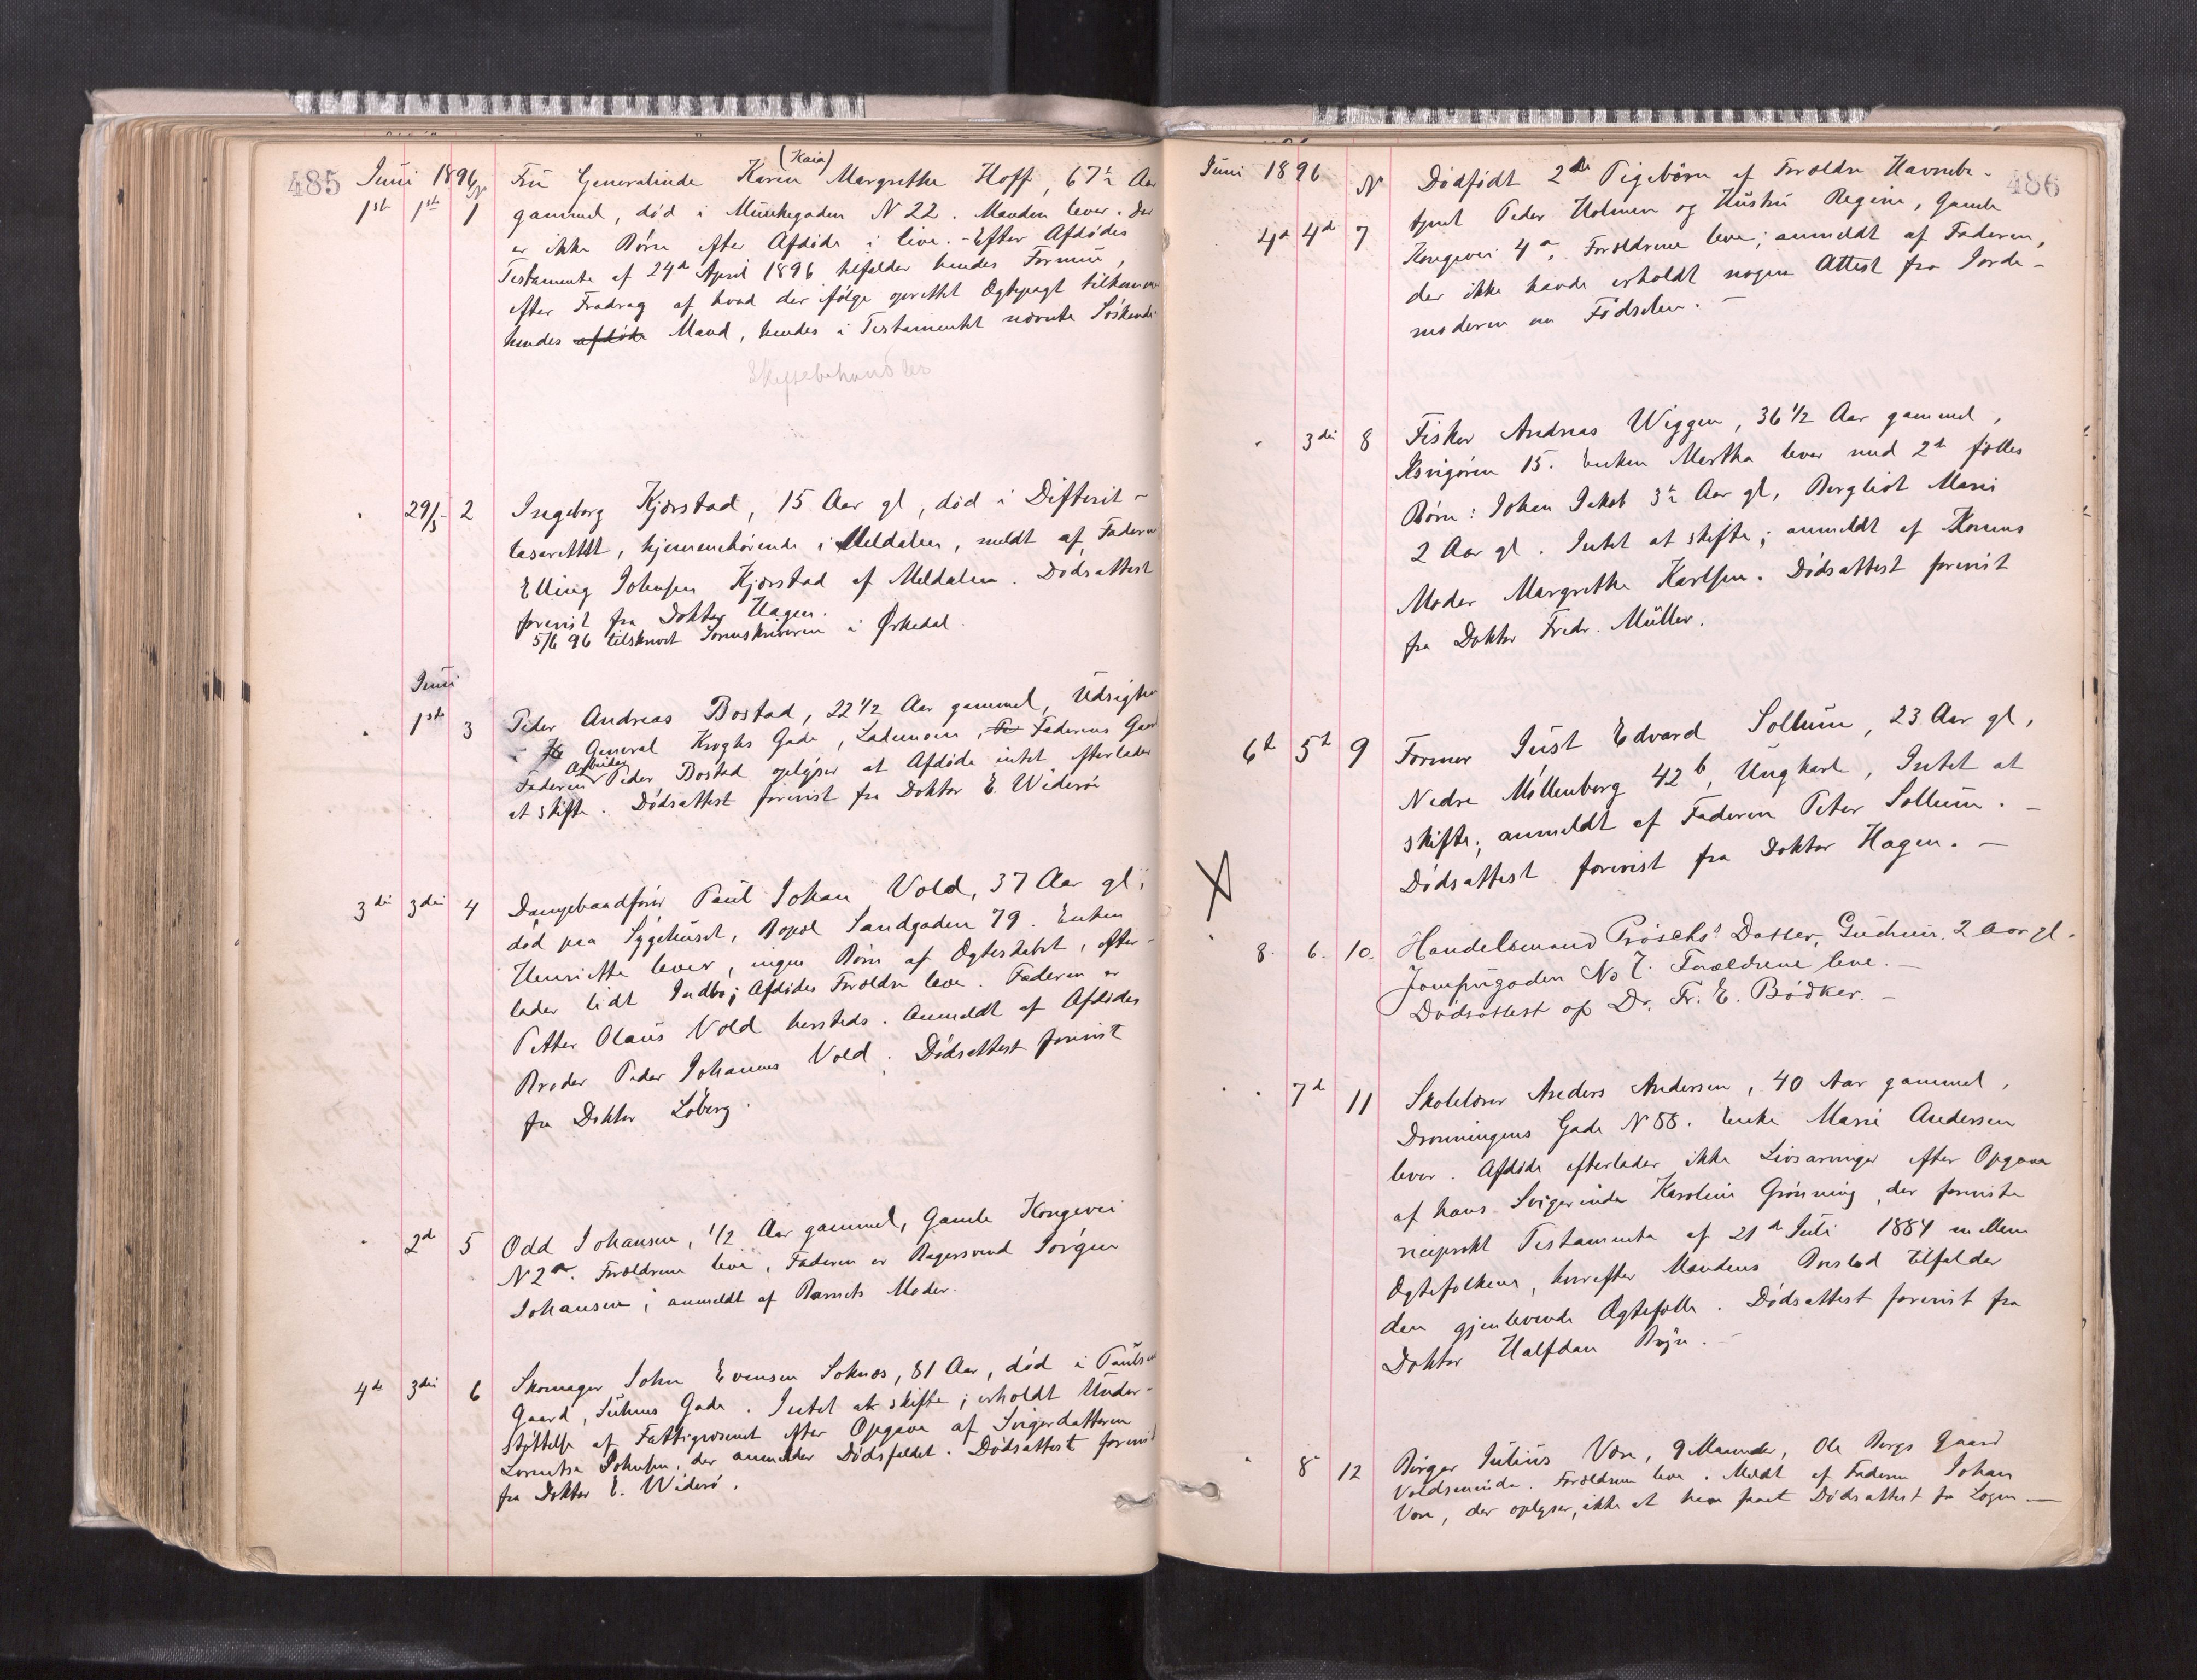 485
Juni 1896
N
1ste 1ste 1
(Kaia)
Fru Generalinde Karen Margrethe Hoff, 67½ Aar
gammel, død i Munkegaden N 22. Manden lever. Der
er ikke Børn efter Afdøde i live. - Efter Afdødes
Testamente af 24de April 1896 tilfalder hendes Formue,
efter Fradrag af hvad der ifølge oprettet Ægtepagt tilkommer
hendes afdøde Mand, hendes i Testamentet nævnte Søskende
Skiftebehandles
29/5 2
Ingeborg Kjørstad, 15 Aar gl, død i Difterit-
lasarettet, hjemmehørende i Meldalen, meldt af Faderen
Elling Johnsen Kjørstad af Meldalen. Dødsattest
forevist fra Doktor Hagen.
5/6 96 tilskrevet Sorenskriveren i Ørkedal.
Juni
1ste 3
Peder Andreas Bostad, 22 1/2 Aar gammel, Udsigten
i General Kroghs Gade, Lademoen, Faderens Gaard
Arbeider
Faderen Peder Bostad oplyser at Afdøde intet efterlader
at skifte. Dødsattest forevist fra Doktor E. Widerøe
3die 3die 4
Dampbaadfører Paul Johan Vold, 37 Aar gl,
død paa Sygehuset, Bopæl Sandgaden 79. Enken
Henriette lever, ingen Børn af Ægteskabet, efter-
lader lidt Indbo; Afdødes Forældre leve. Faderen er
Petter Olaus Vold hersteds. Anmeldt af Afdødes
Broder Peder Johannes Vold. Dødsattest forevist
fra Doktor Løberg.
2de 5
Odd Johansen, 1/2 Aar gammel, Gamle Kongevei
N 2a. Forældrene leve, Faderen er Bagersvend Jørgen
Johansen; anmeldt af Barnets Moder.
4de 3die 6
Skomager John Evensen Soknæs, 81 Aar, død i Paulsens
Gaard, Suhms Gade. Intet at skifte; erholdt Under-
støttelse af Fattigvæsenet efter Opgave af Svigerdatteren
Lorentse Johnsen, der anmelder Dødsfaldet. Dødsattest forevist
fra Doktor E. Widerø.
486
Juni 1896
N
4de 4de 7
Dødfødt 2de Pigebørn af Forældre Havnebe-
tjent Peder Holmen og Hustru Regine, Gamle
Kongevei 4a, Forældrene leve; anmeldt af Faderen,
der ikke havde erholdt nogen Attest fra Jorde-
moderen om Fødselen. -
3die 8
Fisker Andreas Wiggen, 36 1/2 Aar gammel,
Ilsvigøren 15. Enken Martha lever med 2de fælles
Børn: Johan Jakob 3½ Aar gl, Bergliot Marie
2 Aar gl. Intet at skifte; anmeldt af Konens
Moder Margrethe Karlsen. Dødsattest forevist
fra Doktor Fredr. Müller.
6te 5te 9
Former Just Edvard Sollum, 23 Aar gl,
Nedre Møllenberg 42b, Ungkarl, Intet at
skifte; anmeldt af Faderen Peter Sollum. -
Dødsattest forevist fra Doktor Hagen. -
X
8. 6. 10.
Handelsmand Prøsch's Datter, Gudrun, 2 Aar gl.
Jomfrugaden No 7. Forældrene leve. -
Dødsattest af Dr. Fr. E. Bødker. -
7de 11
Skolelærer Anders Andersen, 40 Aar gammel,
Dronningens Gade N 58. Enke Marie Andersen
lever. Afdøde efterlader ikke Livsarvinger efter Opgave
af hans Svigerinde Karoline Grønning, der foreviste
reciprokt Testamente af 21de Juli 1884 mellem
Ægtefolkene, hvorefter Mandens Boeslod tilfalder
den gjenlevende Ægtefælle. Dødsattest forevist fra
Doktor Halfdan Bryn. -
8de 12
Birger Julius Vore, 9 Maaneder, Ole Bergs Gaard
Voldsminde. Forældrene leve. Meldt af Faderen Johan
Vore, der oplyser, ikke at have faaet Dødsattest fra Lægen -